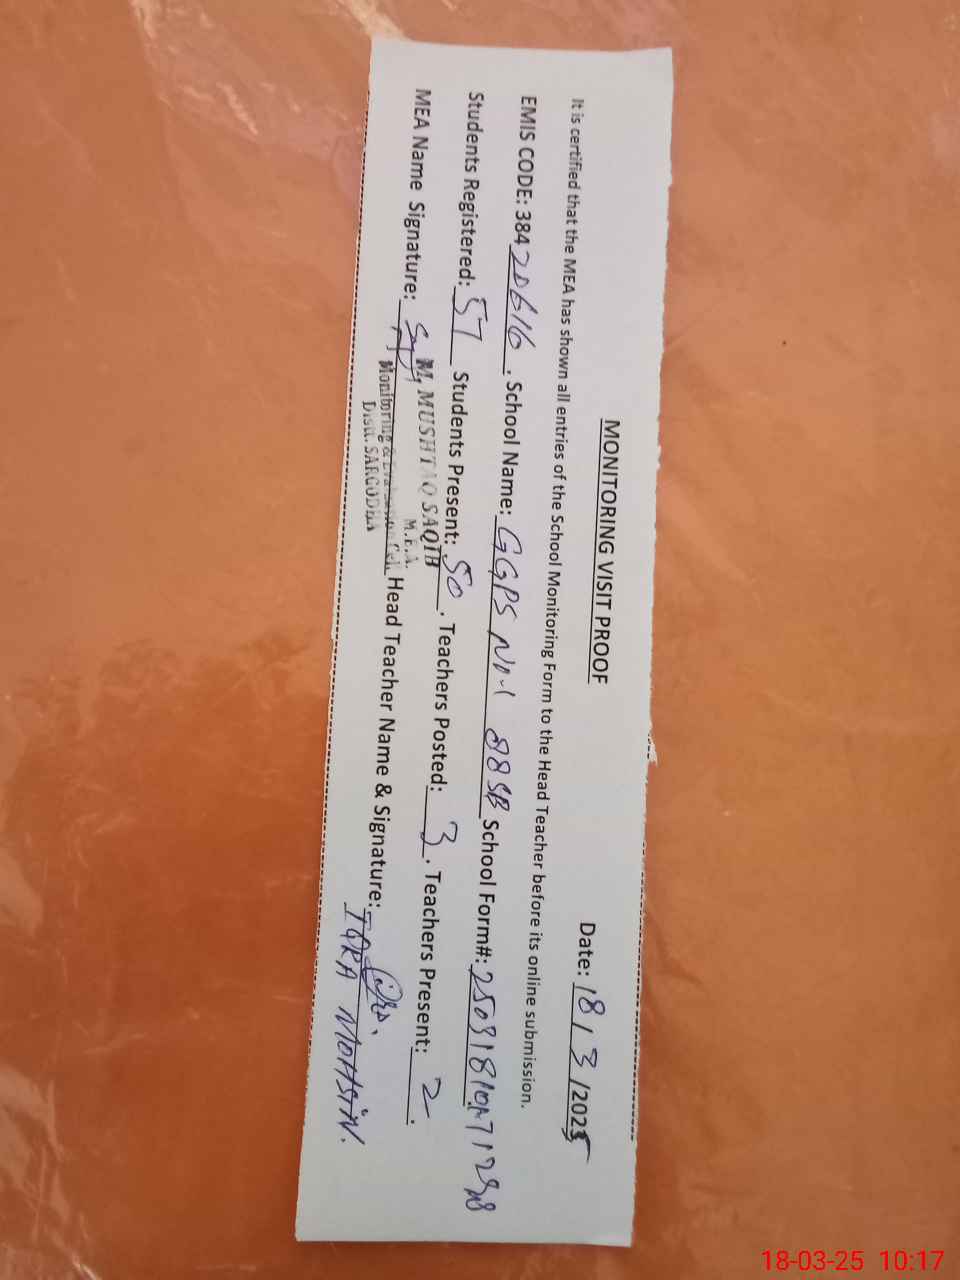 MONITORING VISIT PROOF
Date: 18 / 3 /2025
It is certified that the MEA has shown all entries of the School Monitoring Form to the Head Teacher before its online submission.
EMIS CODE: 38420616 . School Name: GGPS No-1 88 SB School Form#:
Students Registered: 57 Students Present: 50 . Teachers Posted: 3 . Teachers Present: 2 .
MEA Name Signature: Head Teacher Name & Signature:
M. MUSHTAQ SAQIB
M.E.A.
Monitoring & Evaluation Cell
Distt. SARGODHA
IQRA MOHSIN.
18-03-25 10:17